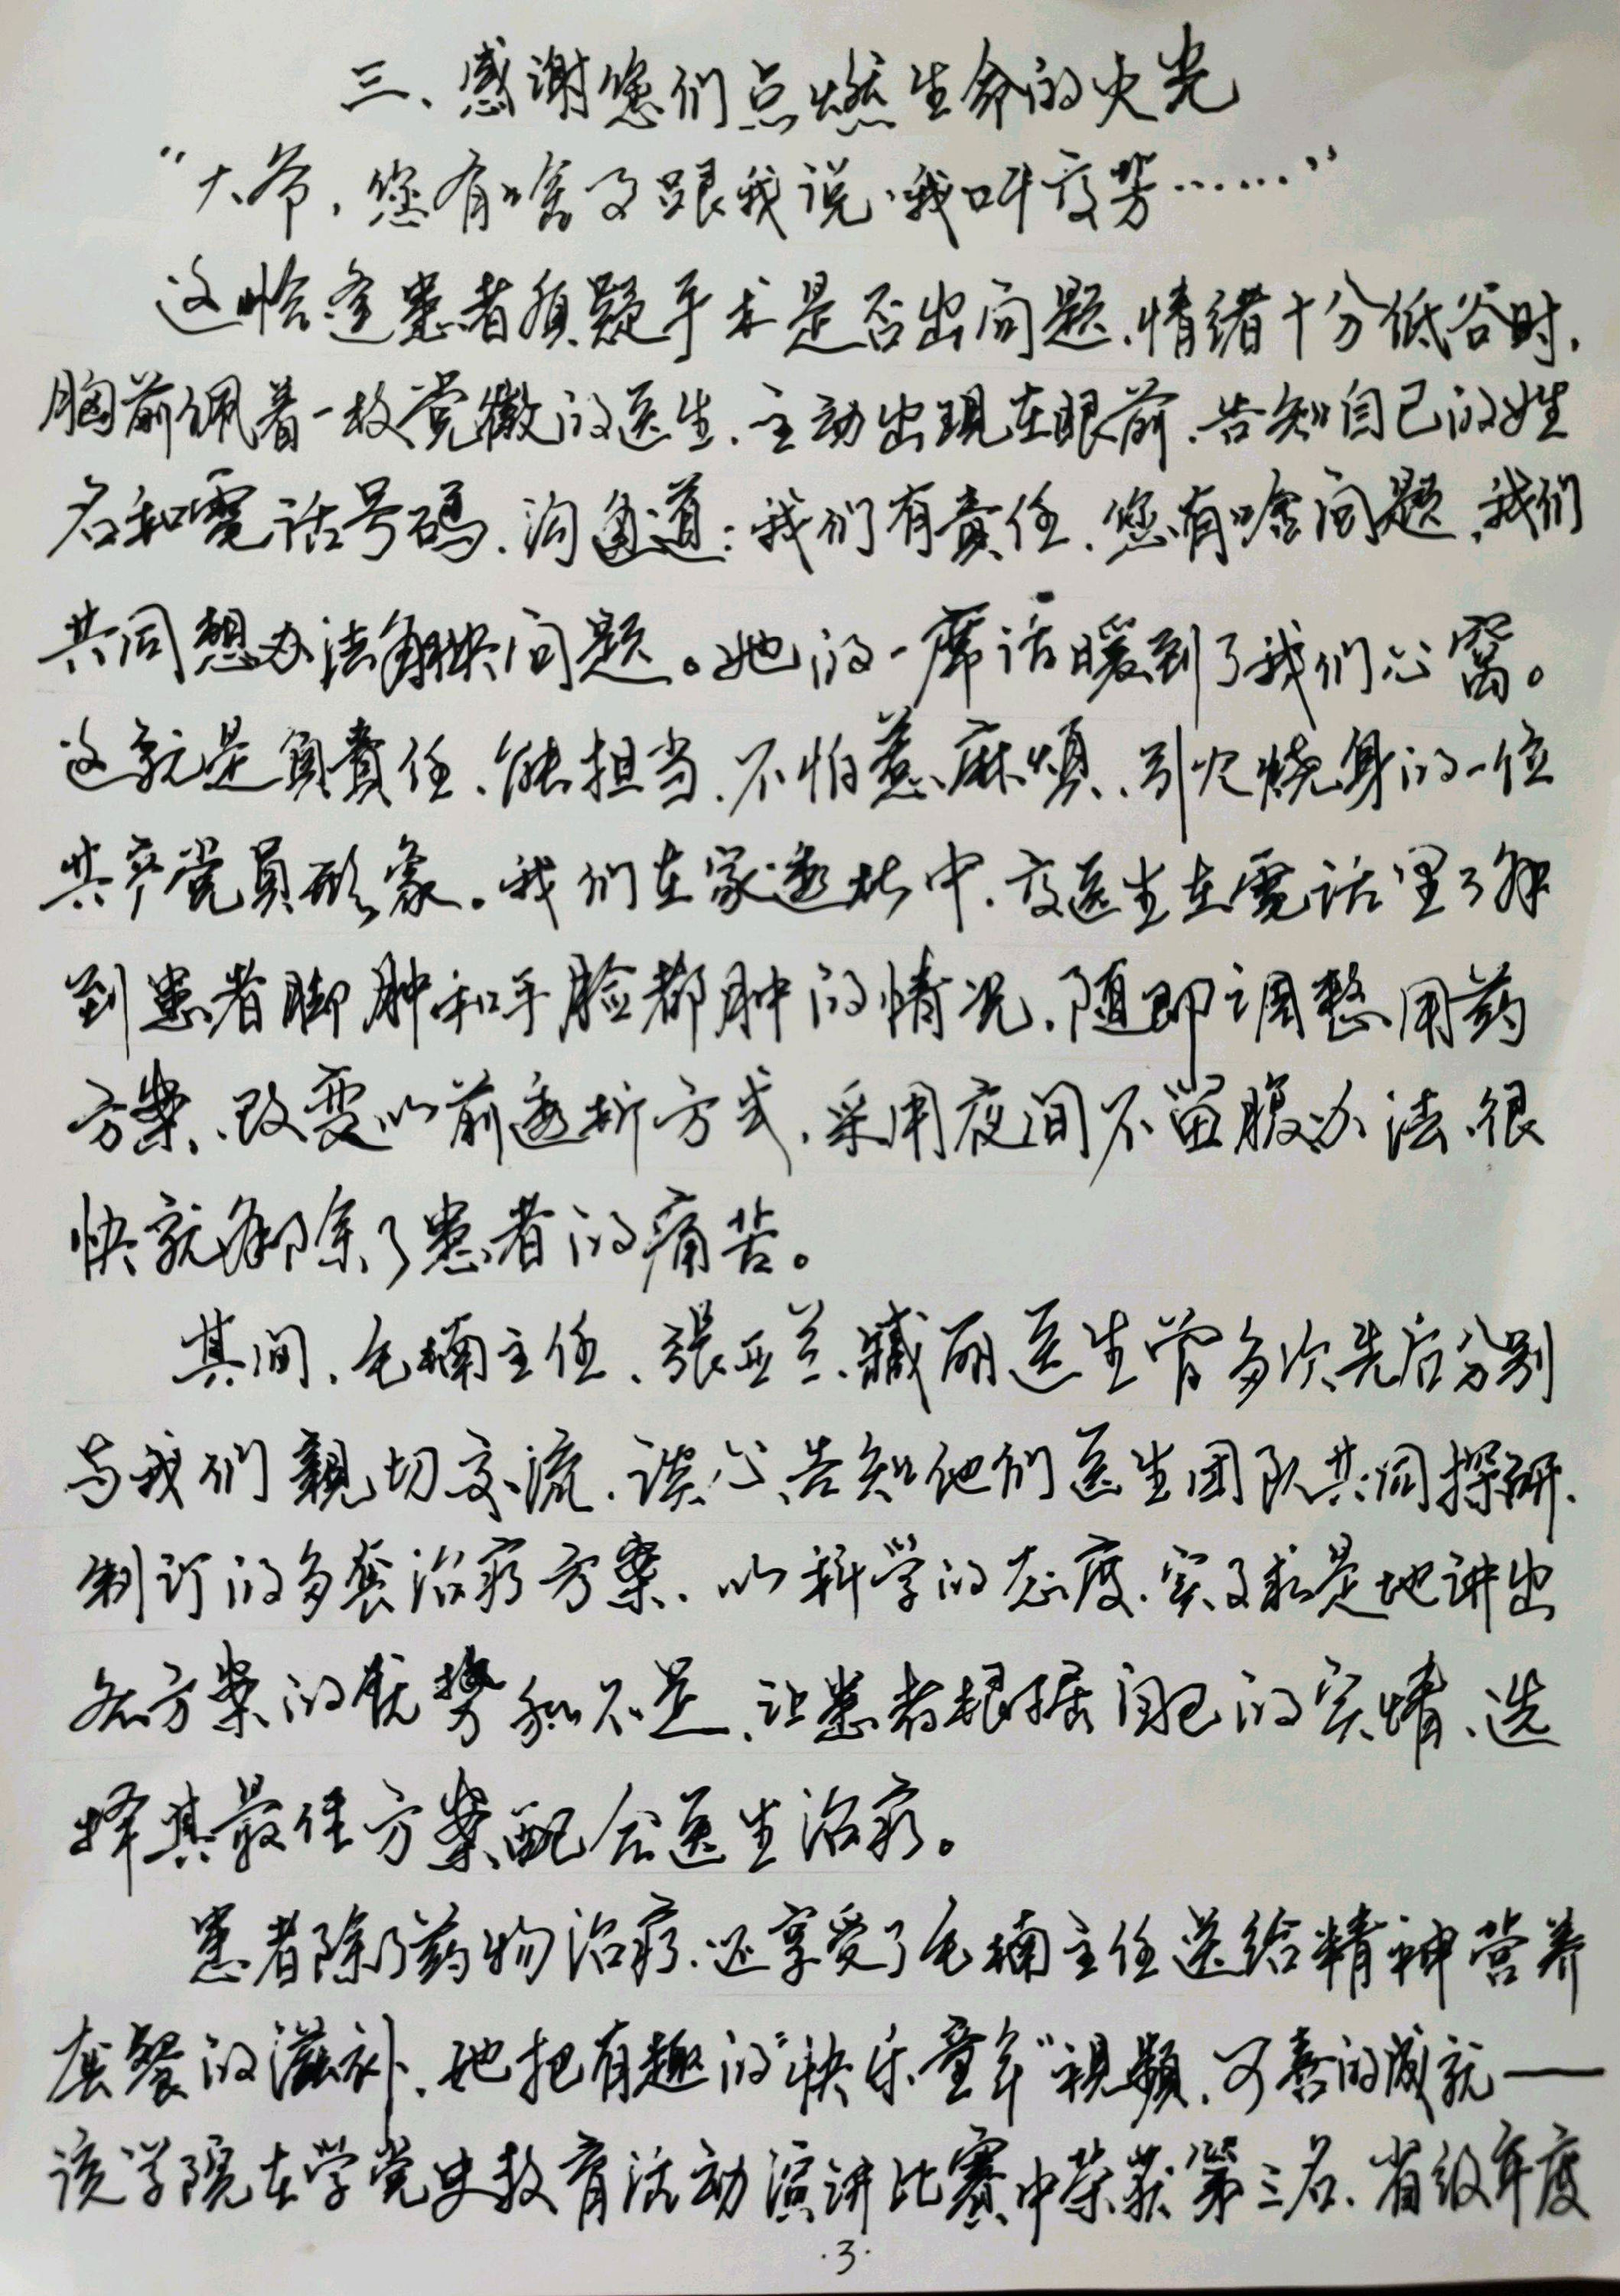 三、感谢您们点燃生命的火光
“大爷，您有啥事跟我说，我叫庞芳……”
这恰逢患者质疑手术是否出问题，情绪十分低谷时，
胸前佩着一枚党徽的医生，主动出现在眼前，告知自己的姓
名和電话号码，沟通道：我们有責任，您有啥问题，我们
共同想办法解决问题。她的一席话暖到了我们心窝。
这就是負責任，能担当，不怕惹麻煩、引火烧身的一位
共产党員形象。我们在家透析中，医生在電话里了解
到患者脚肿和手脸都肿的情况，随即调整用药
方案，改变以前透析方式，采用夜间不留腹办法，很
快就解除了患者的痛苦。
其间，毛楠主任、張亚兰、臧丽医生曾多次先后分别
与我们親切交流，谈心，告知他们医生团队共同探研，
制订的多套治疗方案，以科学的态度，实事求是地讲出
各方案的优势和不足，让患者根据自己的实情，选
择其最佳方案配合医生治疗。
患者除了药物治疗，还享受了毛楠主任送给精神营养
套餐的滋补，她把有趣的“快乐童年”視頻，可喜的成就——
该学院在学党史教育活动演讲比赛中荣获第三名、省级年度
·3·